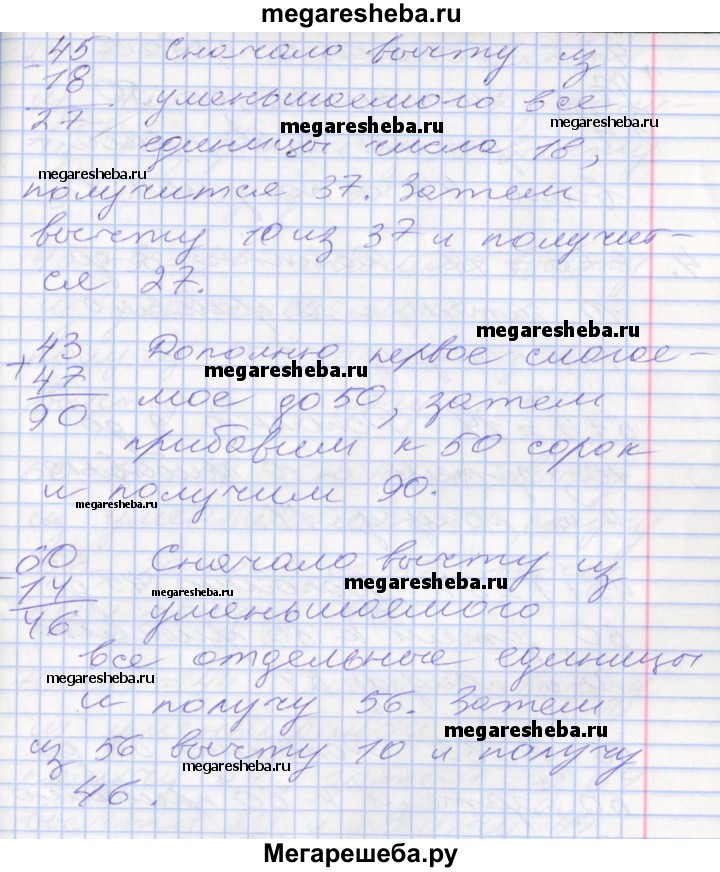 megaresheba.ru
45 Сначало вычту из
- 18 уменьшаемого все
27 megaresheba.ru megaresheba.ru
единицы числа 18,
megaresheba.ru
получится 37. Затем
вычту 10 из 37 и получит-
ся 27.
megaresheba.ru
43 Дополню первое слагае-
+ 47 megaresheba.ru
90 мое до 50, затем
прибавим к 50 сорок
и получим 90.
megaresheba.ru
60 Сначало вычту из
megaresheba.ru
- 14 megaresheba.ru
46 уменьшаемого
все отдельные единицы
megaresheba.ru
и получу 56. Затем
megaresheba.ru
из 56 вычту 10 и получу
megaresheba.ru
46.
Мегарешеба.ру